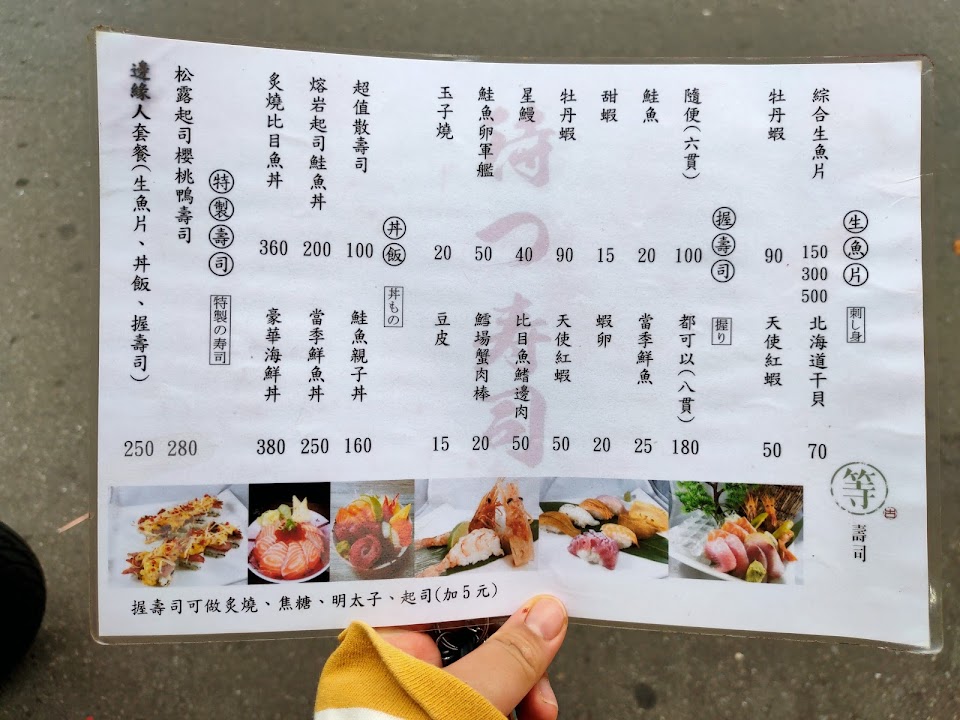 生魚片 刺し身
綜合生魚片 150 300 500
北海道干貝 70
牡丹蝦 90
天使紅蝦 50
握壽司 握り
隨便(六貫) 100
都可以(八貫) 180
鮭魚 20
當季鮮魚 25
甜蝦 15
蝦卵 20
牡丹蝦 90
天使紅蝦 50
星鰻 40
比目魚鰭邊肉 50
鮭魚卵軍艦 50
鱈場蟹肉棒 20
玉子燒 20
豆皮 15
丼飯 丼もの
超值散壽司 100
鮭魚親子丼 160
熔岩起司鮭魚丼 200
當季鮮魚丼 250
炙燒比目魚丼 360
豪華海鮮丼 380
特製壽司 特製の寿司
松露起司櫻桃鴨壽司 280
邊緣人套餐(生魚片、丼飯、握壽司) 250
待つ寿司
等 壽司
握壽司可做炙燒、焦糖、明太子、起司(加5元)